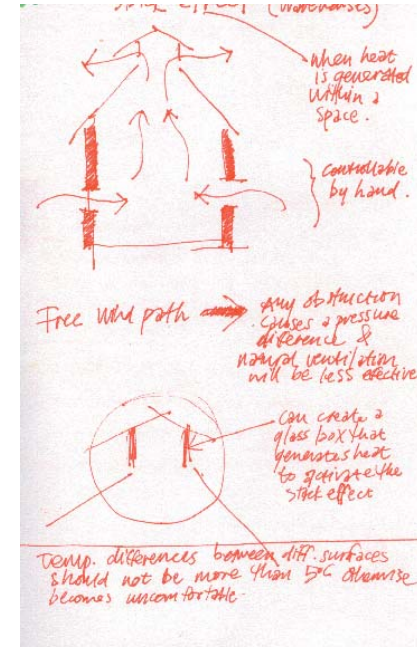 stack effect (warehouses)
when heat
is generated
within a
space.
controllable
by hand.
Free wind path → Any obstruction
causes a pressure
diference &
natural ventilation
will be less efective
can create a
glass box that
generates heat
to activate the
stack effect
temp. differences between diff. surfaces
should not be more than 5°C otherwise
becomes uncomfortable.